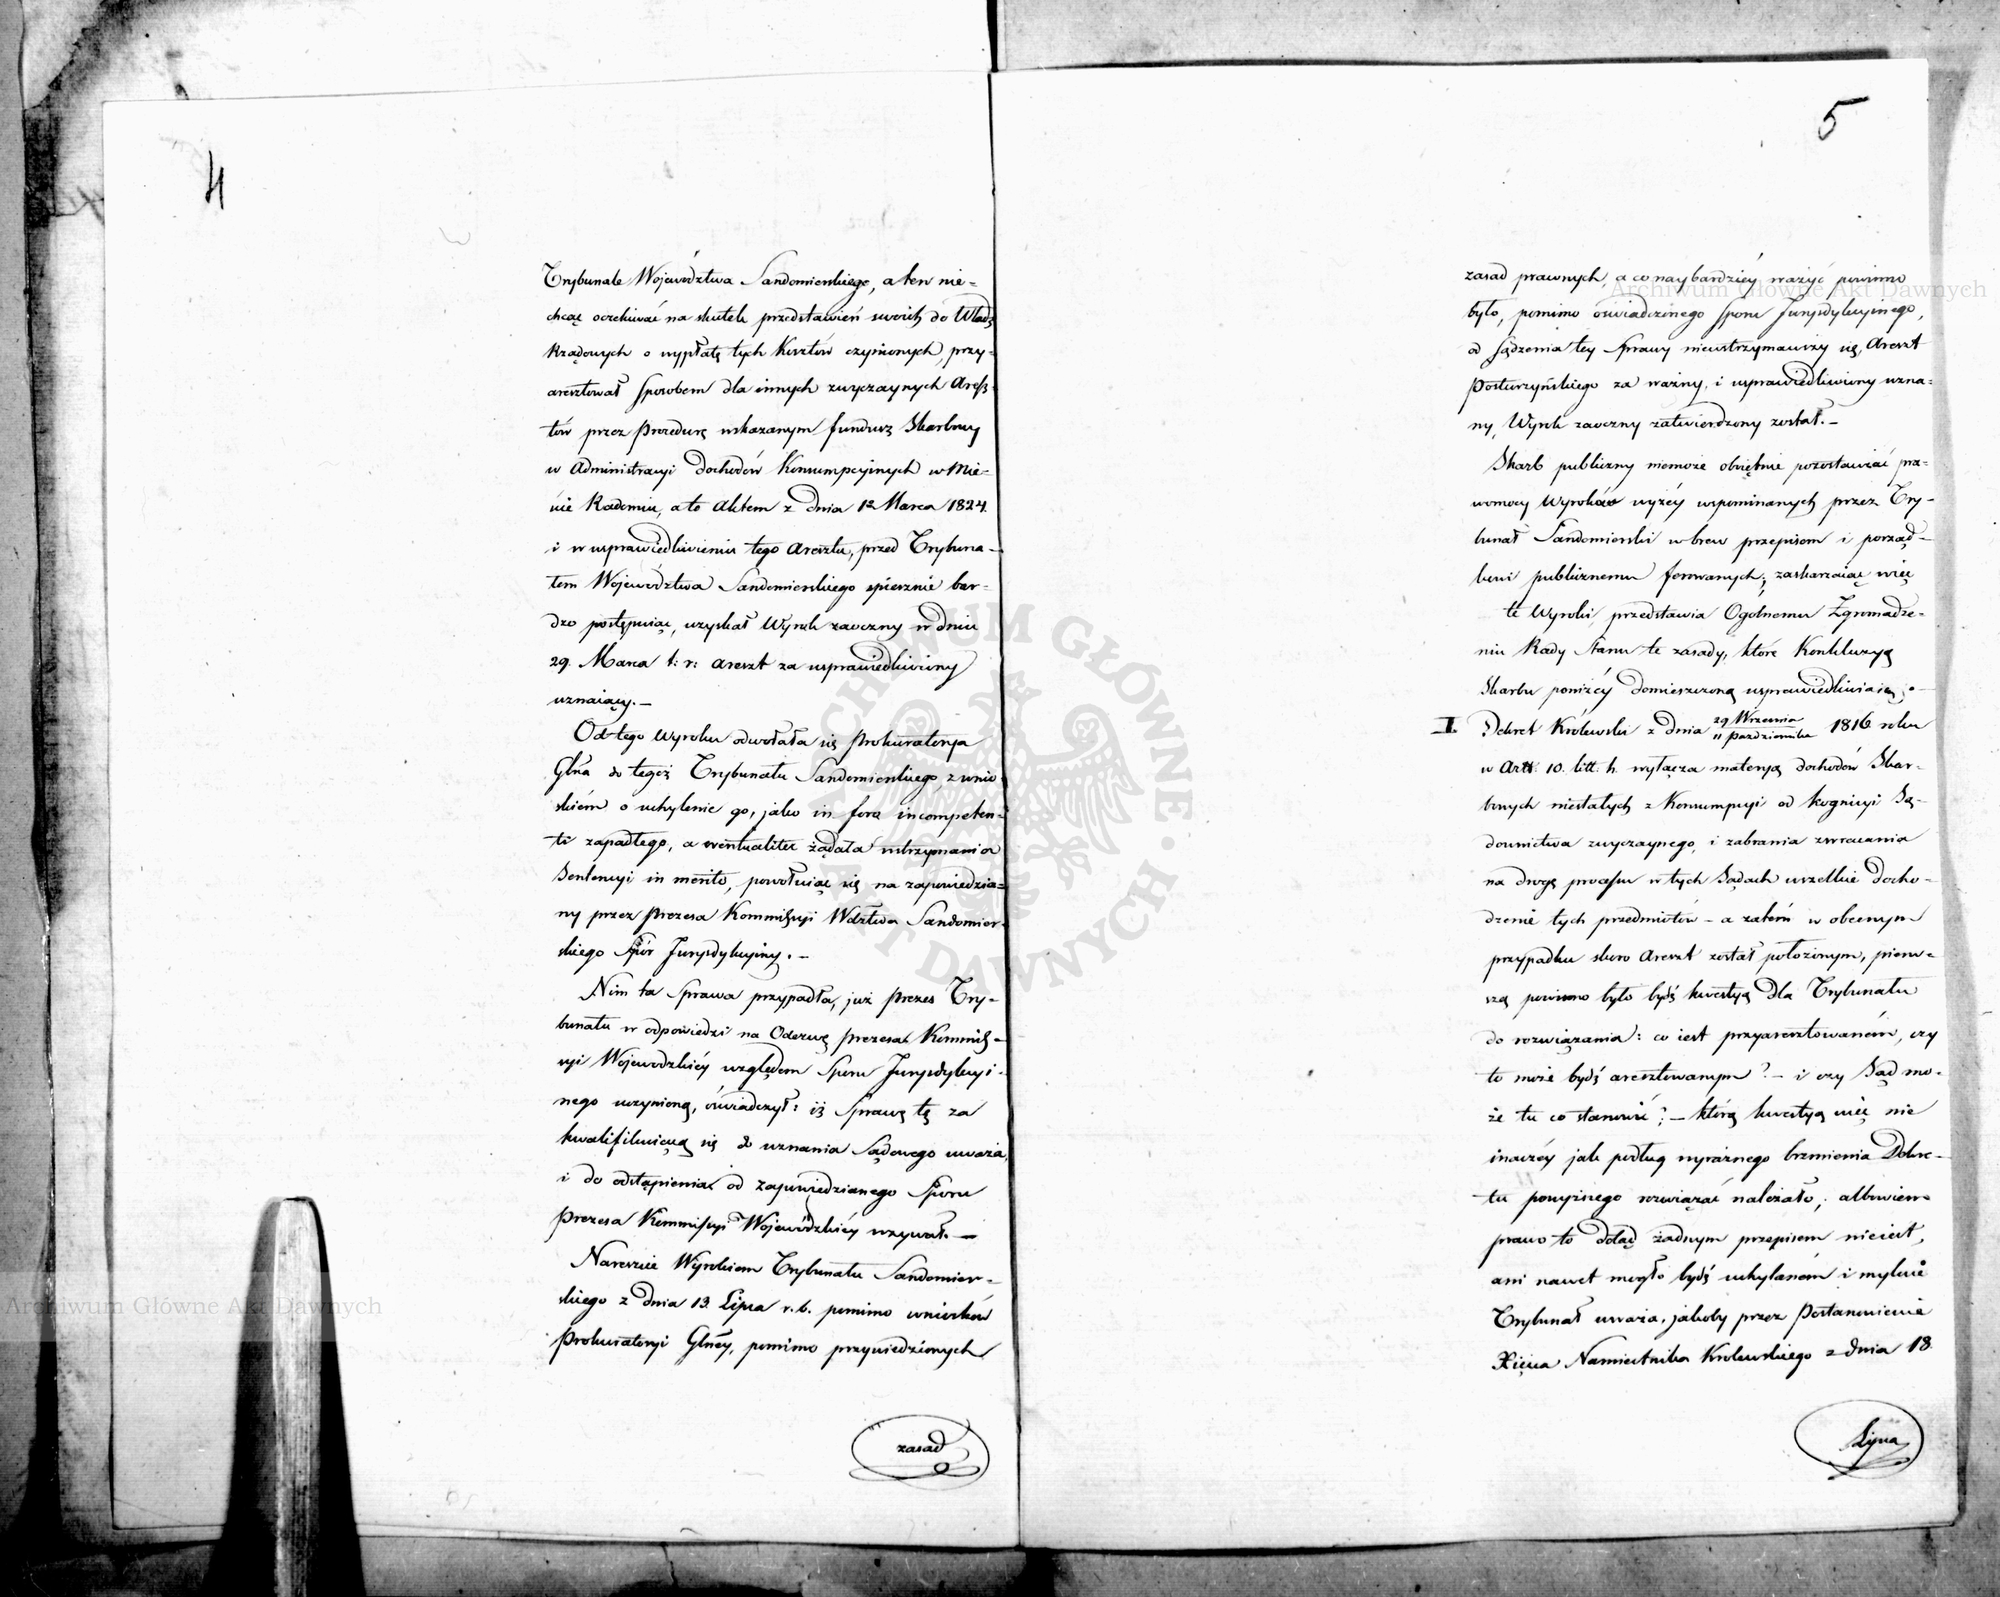 4
Trybunale Województwa Sandomierskiego, a ten nie=
chcąc oczekiwać na skutek przedstawień swoich do Władz
Rządowych o wypłatę tych kosztów czynionych, przy=
aresztował sposobem dla innych zwyczaynych Aresz=
tów przez Procedurę wskazanym fundusz Skarbowy
w Administracyi dochodów Konsumpcyinych w Mie=
ście Radomiu, a to Aktem z dnia 12 Marca 1824.
i w usprawiedliwieniu tego Aresztu, przed Trybuna=
łem Województwa Sandomierskiego spiesznie bar=
dzo postępuiąc, uzyskał Wyrok zaoczny w dniu
29. Marca t: r: areszt za usprawiedliwiony
uznaiący. —
Od tego Wyroku odwołała się Prokuratorya
Głna do tegoż Trybunału Sandomierskiego, z wnio=
skiem o uchylenie go, jako in foro incompeten=
ti zapadłego, a eventualiter żądała wstrzymania
Sentencyi in merito, powołuiąc się na zapowiedzia=
ny przez Prezesa Kommissyi Wdztwa Sandomier=
skiego Spór Jurysdykcyiny. —
Nim ta Sprawa przypadła, już Prezes Try=
bunału w odpowiedzi na Odezwę Prezesa Kommis=
syi Wojewodzkiéy względem Sporu Jurysdykcyi=
nego uczynioną, oświadczył: iż Sprawę tę za
kwalifikuiącą się do uznania Sądowego uważa,
i do odstąpienia od zapowiedzianego Sporu
Prezesa Kommissyi Wojewódzkiéy wzywał. —
Nareszcie Wyrokiem Trybunału Sandomier=
skiego z dnia 13. Lipca r. b. pomimo wniosków
Prokuratoryi Głnéy, pomimo przywiedzionych
zasad
5
zasad prawnych, a co naybardziéy ważyć powinno
było, pomimo oświadczonego sporu Jurysdykcyinego,
od sądzenia tey Sprawy nieustrzymawszy się, Areszt
Posturzyńskiego za ważny, i usprawiedliwiony uzna=
ny, Wyrok zaoczny zatwierdzony został. —
Skarb publiczny niemoże obojętnie pozostawiać pra=
womocy Wyroków wyżéy wspominanych przez Try=
bunał Sandomierski wbrew przepisom i porząd=
kowi publicznemu ferowanych; zaskarżaiąc więc
te Wyroki, przedstawia Ogólnemu Zgromadze=
niu Rady Stanu te zasady, które Konkluzyą
Skarbu poniżéy domieszczoną usprawiedliwiaią. —
I. Dekret Królewski z dnia 29 Września / 11 Października 1816 roku
w Art. 10. litt: h. wyłącza materyą dochodów Skar=
bowych niestałych z Konsumpcyi od kognicyi Są=
downictwa zwyczaynego, i zabrania zwracania
na drogę processu w tych Sądach wszelkie docho=
dzenie tych przedmiotów — a zatém w obecnym
przypadku skoro Areszt został położonym, pierw=
szą powinno było bydź kwestyą dla Trybunału
do rozwiązania: co iest przyaresztowaném, czy
to może bydź aresztowanym? — i czy Sąd mo=
że tu co stanowić? — którą kwestyą więc nie
inaczéy jak podług wyraźnego brzmienia Dekre=
tu powyższego rozwiązać należało; albowiem
prawo to dotąd żadnym przepisem nieiest,
ani nawet mogło bydź uchylaném i mylnie
Trybunał uważa, jakoby przez Postanowienie
Xięcia Namiestnika Królewskiego z dnia 18.
Lipca
Archiwum Główne Akt Dawnych
Archiwum Główne Akt Dawnych
ARCHIWUM GŁÓWNE · AKT DAWNYCH ·